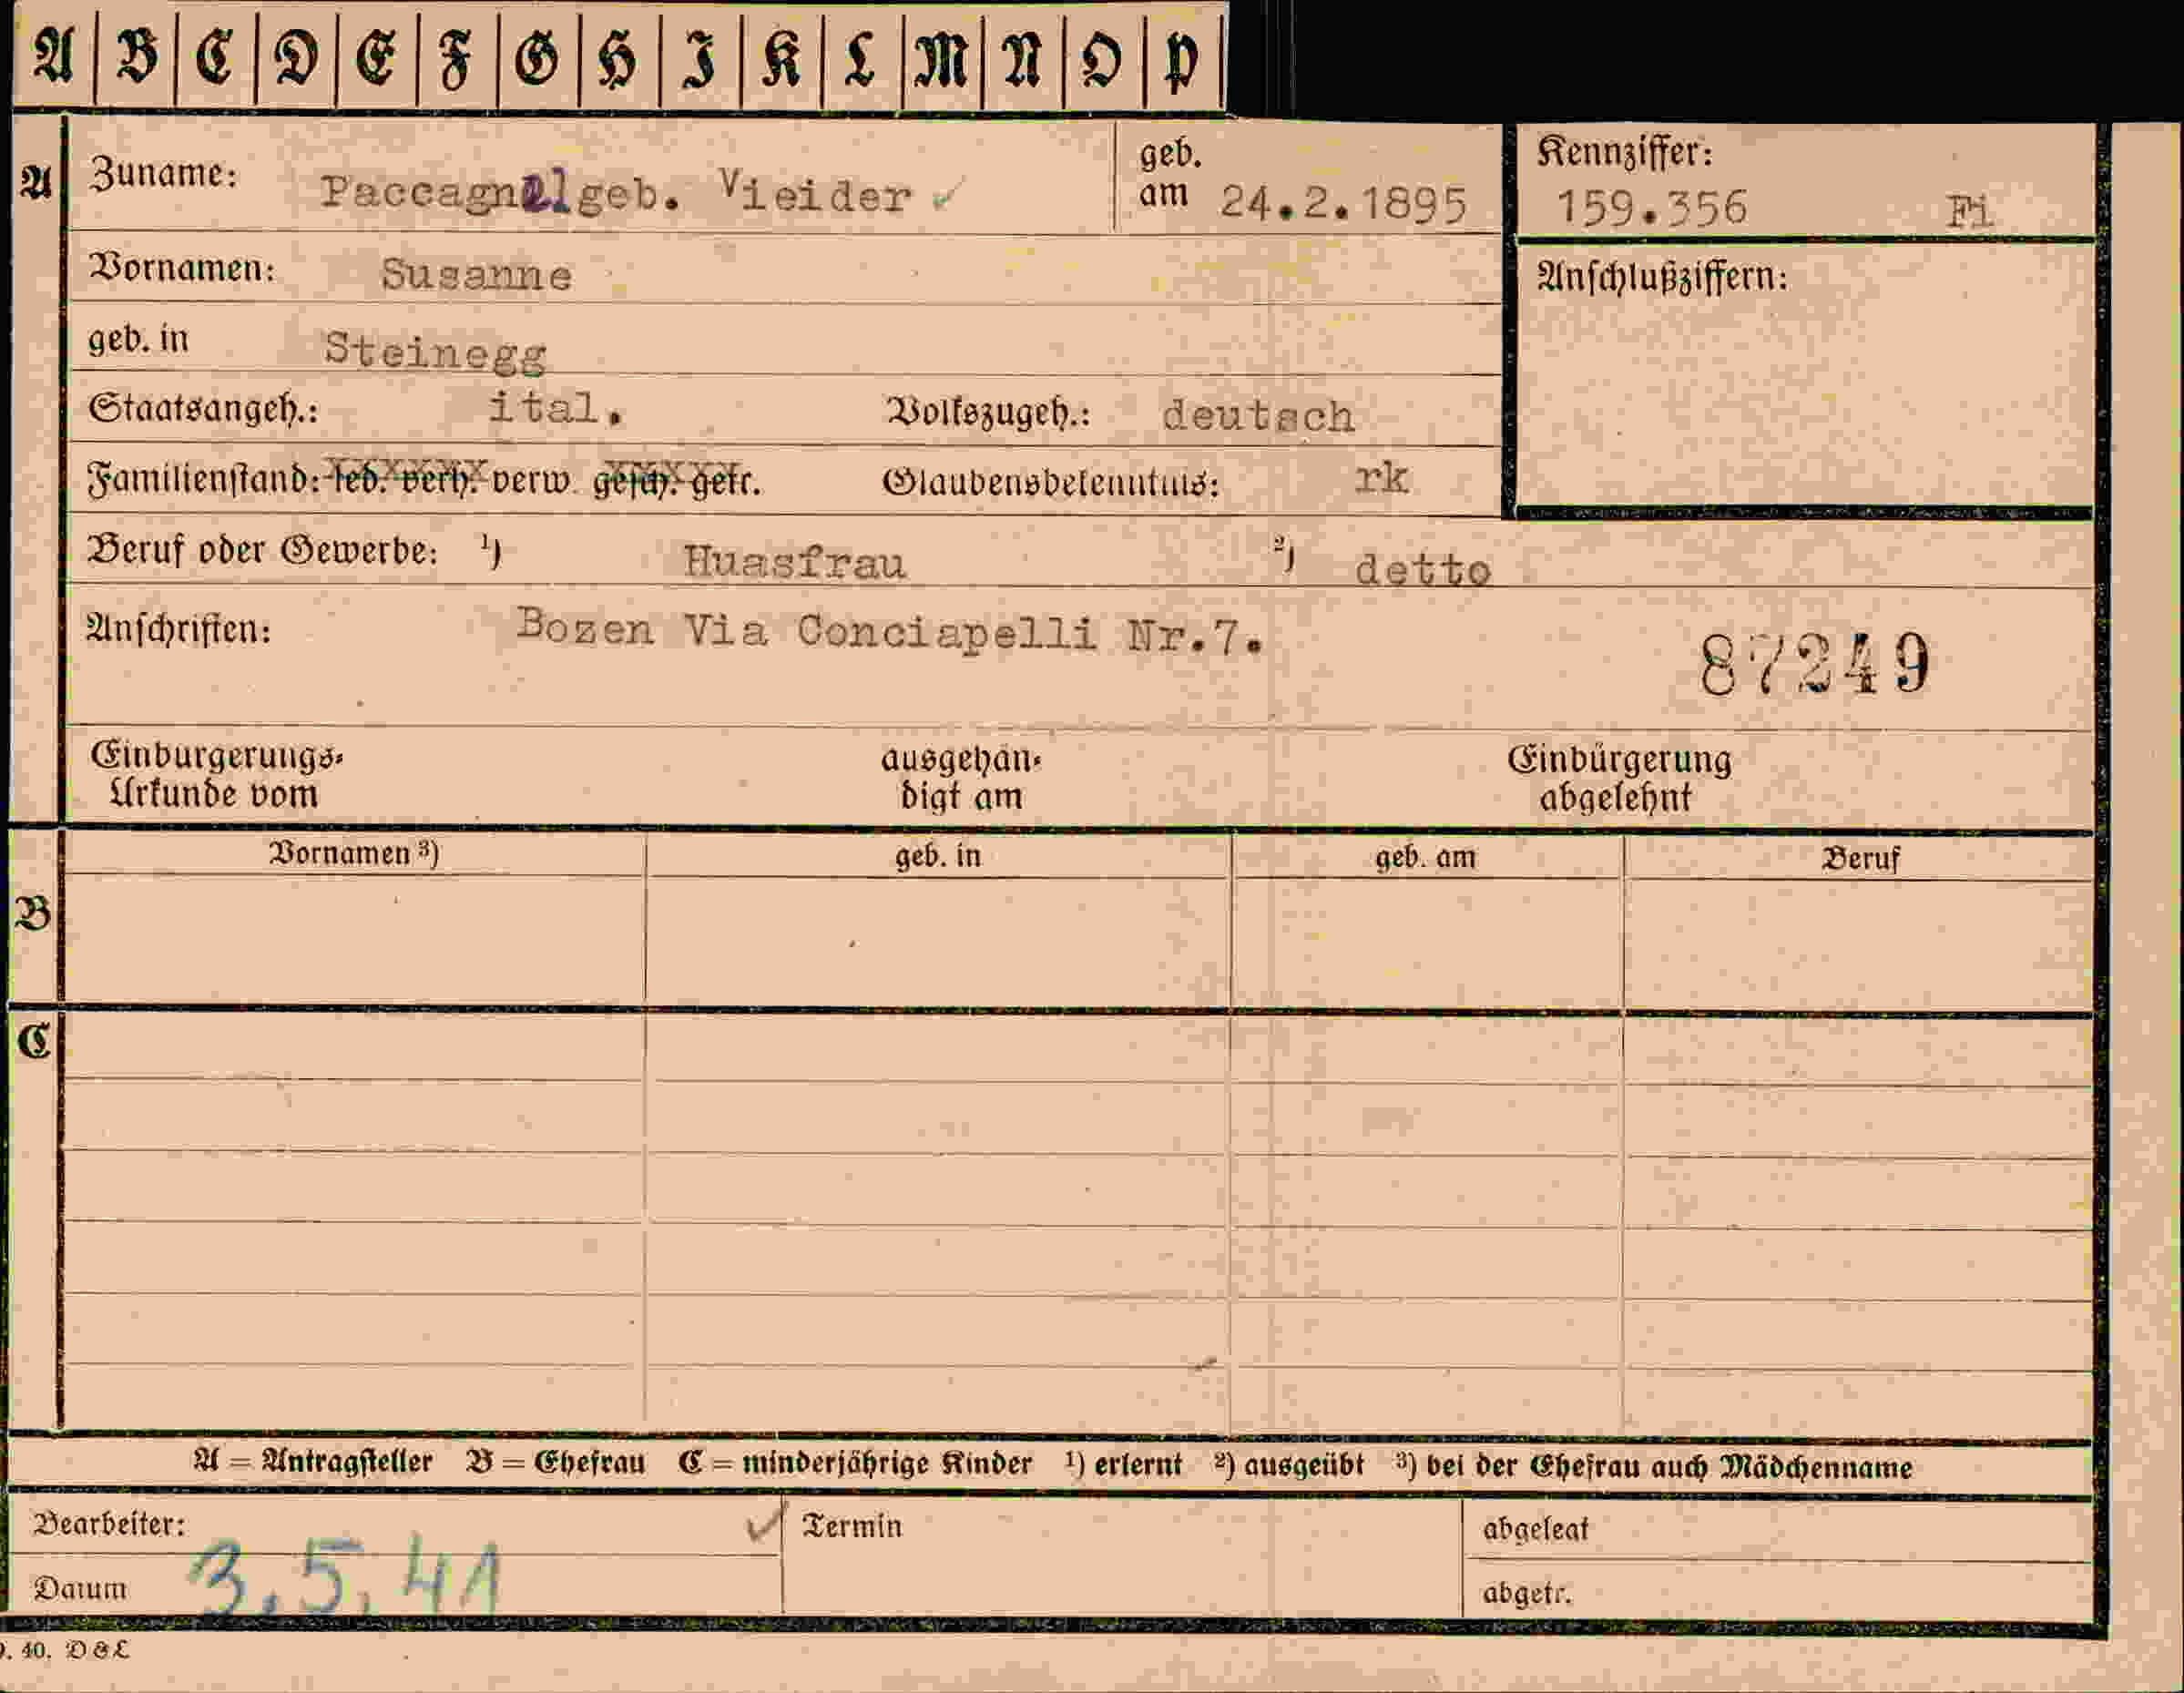 A B C D E F G H I K L M N O P
A Zuname: Paccagnel geb. Vieider ✓ geb. am 24.2.1895 Kennziffer: 159.356 Fi
Vornamen: Susanne Anschlußziffern:
geb. in Steinegg
Staatsangeh.: ital. Volkszugeh.: deutsch
Familienstand: led. verh. verw. gesch. getr. Glaubensbekenntnis: rk
Beruf oder Gewerbe: 1) Huasfrau 2) detto
Anschriften: Bozen Via Conciapelli Nr.7. 87249
Einbürgerungs- ausgehän- Einbürgerung
Urkunde vom digt am abgelehnt
Vornamen 3) geb. in geb. am Beruf
B
C
A = Antragsteller B = Ehefrau C = minderjährige Kinder 1) erlernt 2) ausgeübt 3) bei der Ehefrau auch Mädchenname
Bearbeiter: ✓ Termin abgelegt
Datum 3.5.41 abgetr.
. 40. D&L